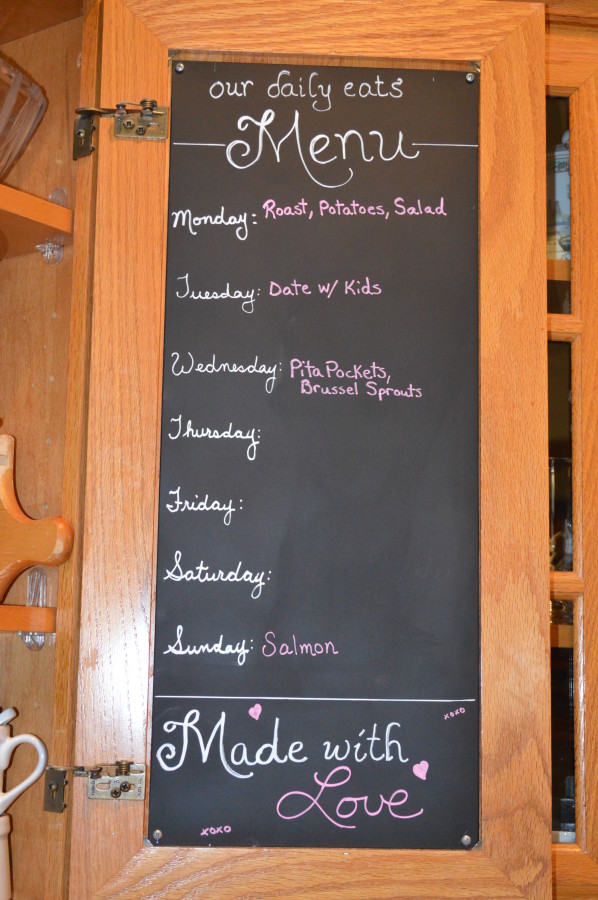 our daily eats
Menu
Monday: Roast, Potatoes, Salad
Tuesday: Date w/ Kids
Wednesday: Pita Pockets,
Brussel Sprouts
Thursday:
Friday:
Saturday:
Sunday: Salmon
xoxo
Made with
Love
xoxo